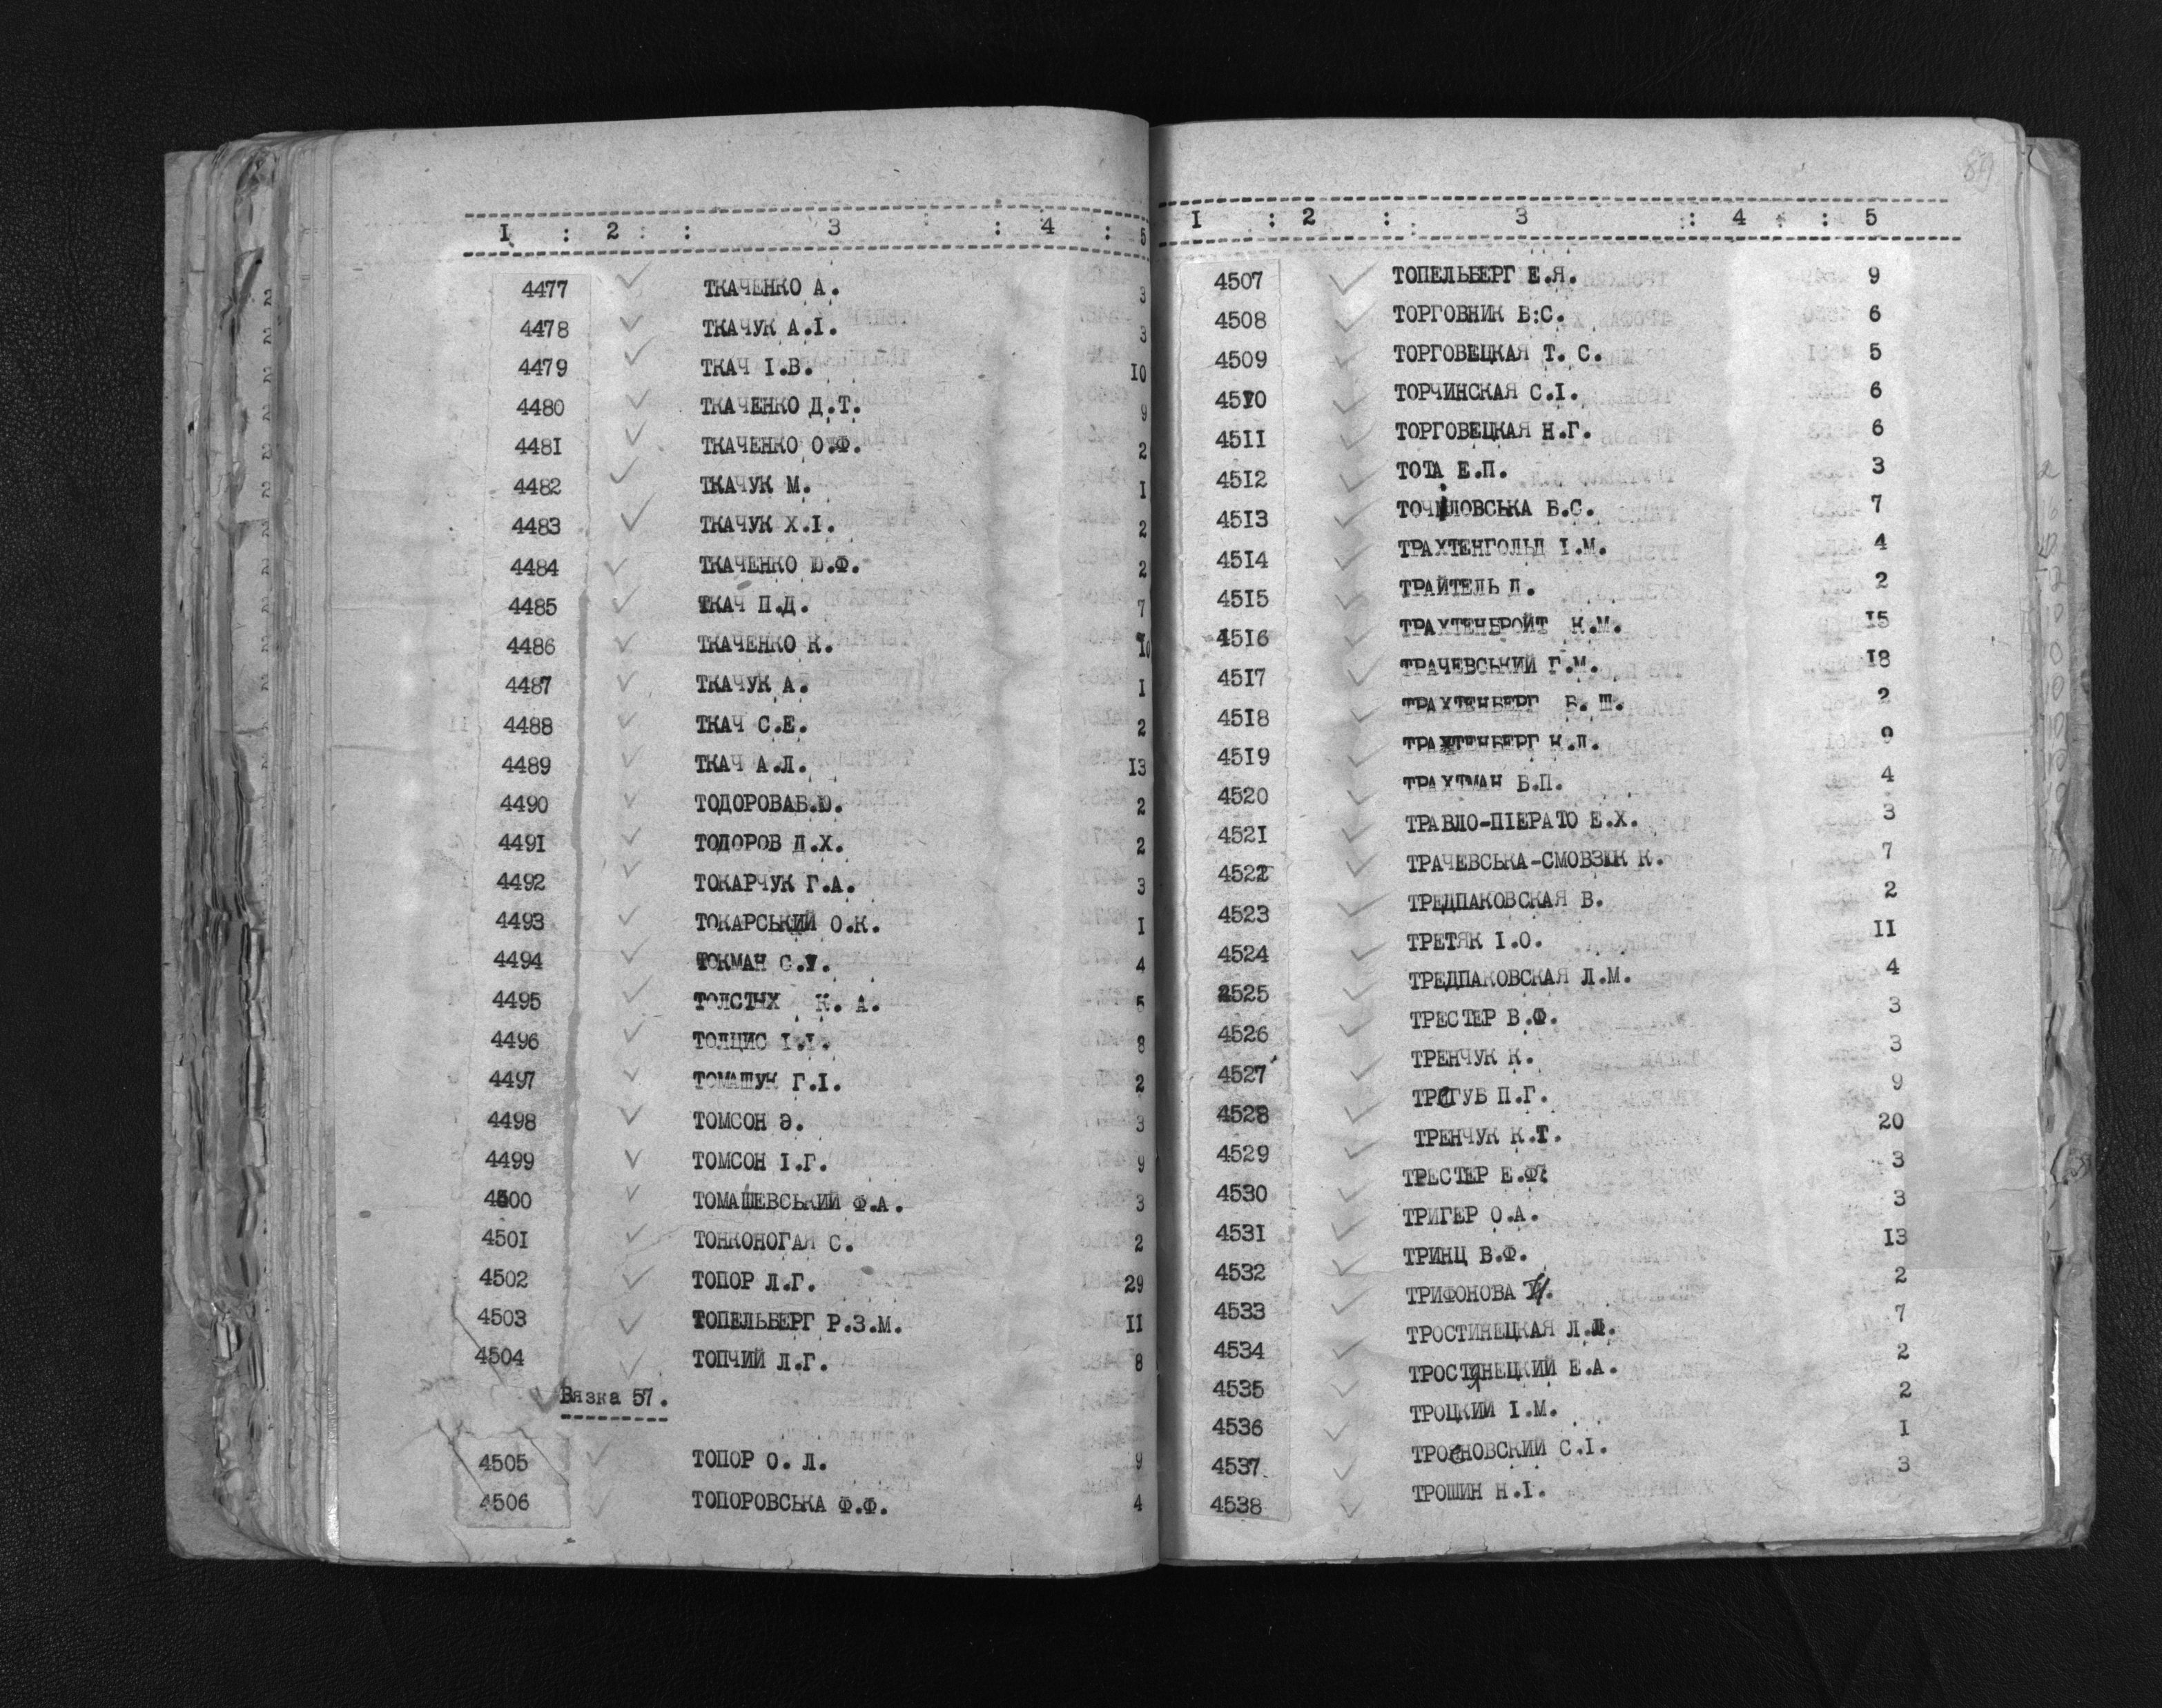 I : 2 : 3 : 4 : 5
4477 ТКАЧЕНКО А. 3
4478 ТКАЧУК А.І. 3
4479 ТКАЧ І.В. IO
4480 ТКАЧЕНКО Д.Т. 9
448I ТКАЧЕНКО О.Ф. 2
4482 ТКАЧУК М. I
4483 ТКАЧУК Х.І. 2
4484 ТКАЧЕНКО Ю.Ф. 2
4485 ТКАЧ П.Д. 7
4486 ТКАЧЕНКО К. IO
4487 ТКАЧУК А. I
4488 ТКАЧ С.Е. 2
4489 ТКАЧ А.Л. I3
4490 ТОДОРОВАБ.Ю. 2
449I ТОДОРОВ Д.Х. 2
4492 ТОКАРЧУК Г.А. 3
4493 ТОКАРСЬКИЙ О.К. I
4494 ТОКМАН С.У. 4
4495 ТОЛСТЫХ К. А. 5
4496 ТОЛЦИС І.І. 8
4497 ТОМАШУК Г.І. 2
4498 ТОМСОН Э. 3
4499 ТОМСОН І.Г. 9
4500 ТОМАШЕВСЬКИЙ Ф.А. 3
450I ТОНКОНОГАЯ С. 2
4502 ТОПОР Л.Г. 29
4503 ТОПЕЛЬБЕРГ Р.З.М. II
4504 ТОПЧИЙ Л.Г. 8
Вязка 57.
4505 ТОПОР О. Л. 9
4506 ТОПОРОВСЬКА Ф.Ф. 4
89
I : 2 : 3 : 4 : 5
4507 ТОПЕЛЬБЕРГ Е.Я. 9
4508 ТОРГОВНИК В:С. 6
4509 ТОРГОВЕЦКАЯ Т. С. 5
45I0 ТОРЧИНСКАЯ С.І. 6
45II ТОРГОВЕЦКАЯ Н.Г. 6
45I2 ТОТА Е.П. 3
45I3 ТОЧІЛОВСЬКА Б.С. 7
45I4 ТРАХТЕНГОЛЬД І.М. 4
45I5 ТРАЙТЕЛЬ Л. 2
45I6 ТРАХТЕНБРОЙТ К.М. I5
45I7 ТРАЧЕВСЬКИЙ Г.М. I8
45I8 ТРАХТЕНБЕРГ Б. Ш. 2
45I9 ТРАХТЕНБЕРГ К.Л. 9
4520 ТРАХТМАН Б.П. 4
452I ТРАВЛО-ПІЕРАТО Е.Х. 3
4522 ТРАЧЕВСЬКА-СМОВЗЮК К. 7
4523 ТРЕДПАКОВСКАЯ В. 2
4524 ТРЕТЯК І.О. II
4525 ТРЕДПАКОВСКАЯ Л.М. 4
4526 ТРЕСТЕР В.Ф. 3
4527 ТРЕНЧУК К. 3
4528 ТРИГУБ П.Г. 9
4529 ТРЕНЧУК К.Т. 20
4530 ТРЕСТЕР Е.Ф. 3
453I ТРИГЕР О.А. 3
4532 ТРИНЦ В.Ф. I3
4533 ТРИФОНОВА И. 2
4534 ТРОСТИНЕЦКАЯ Л.Л. 7
4535 ТРОСТЯНЕЦКИЙ Е.А. 2
4536 ТРОЦКИЙ І.М. 2
4537 ТРОЯНОВСКИЙ С.І. I
4538 ТРОШИН Н.І. 3